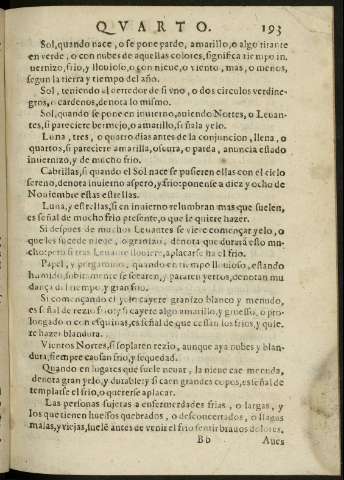 QVARTO. 193
Sol, quando nace, o se pone pardo, amarillo, o algo tirante
en verde, o con nubes de aquellas colores, significa tiempo in-
uernizo, frio, y lluuioso, o con nieue, o viento, mas, o menos,
segun la tierra y tiempo del año.
Sol, teniendo al derredor de si vno, o dos circulos verdine-
gros, o cardenos, denota lo mismo.
Sol, quando se pone en inuierno, auiendo Nortes, o Leuan-
tes, si pareciere bermejo, o amarillo, señala yelo.
Luna, tres, o quatro dias antes de la conjuncion, llena, o
quartos, si pareciere amarilla, oscura, o parda, anuncia estado
inuernizo, y de mucho frio.
Cabrillas, si quando el Sol nace se pusieren ellas con el cielo
sereno, denota inuierno aspero, y frio: ponense a diez y ocho de
Nouiembre estas estrellas.
Luna, y estrellas, si en inuierno relumbran mas que suelen,
es señal de mucho frio presente, o que le quiere hazer.
Si despues de muchos Leuantes se viene començar yelo, o
que les sucede nieue, o granizo, denota que durarà esto mu-
cho: pero si tras Leuante llouiere, aplacarse ha el frio.
Papel, y pergamino, quando en tiempo lluuioso, estando
humido, subitamente se secaren, y pararen yertos, denotan mu
dança del tiempo, y gran frio.
Si començando el yelo cayere granizo blanco y menudo,
es señal de rezio frio: y si cayere algo amarillo, y gruesso, o pro-
longado o con esquinas, es señal de que cessan los frios, y quie-
re hazer blandura.
Vientos Nortes, si soplaren rezio, aunque aya nubes y blan-
dura, siempre causan frio, y sequedad.
Quando en lugares que suele neuar, la nieue cae menuda,
denota gran yelo, y durable: y si caen grandes copos, es señal de
templarse el frio, o quererse aplacar.
Las personas sujetas a enfermedades frias, o largas, y
los que tienen huessos quebrados, o desconcertados, o llagas
malas, y viejas, suele antes de venir el frio sentir brauos dolores.
Bb Aues